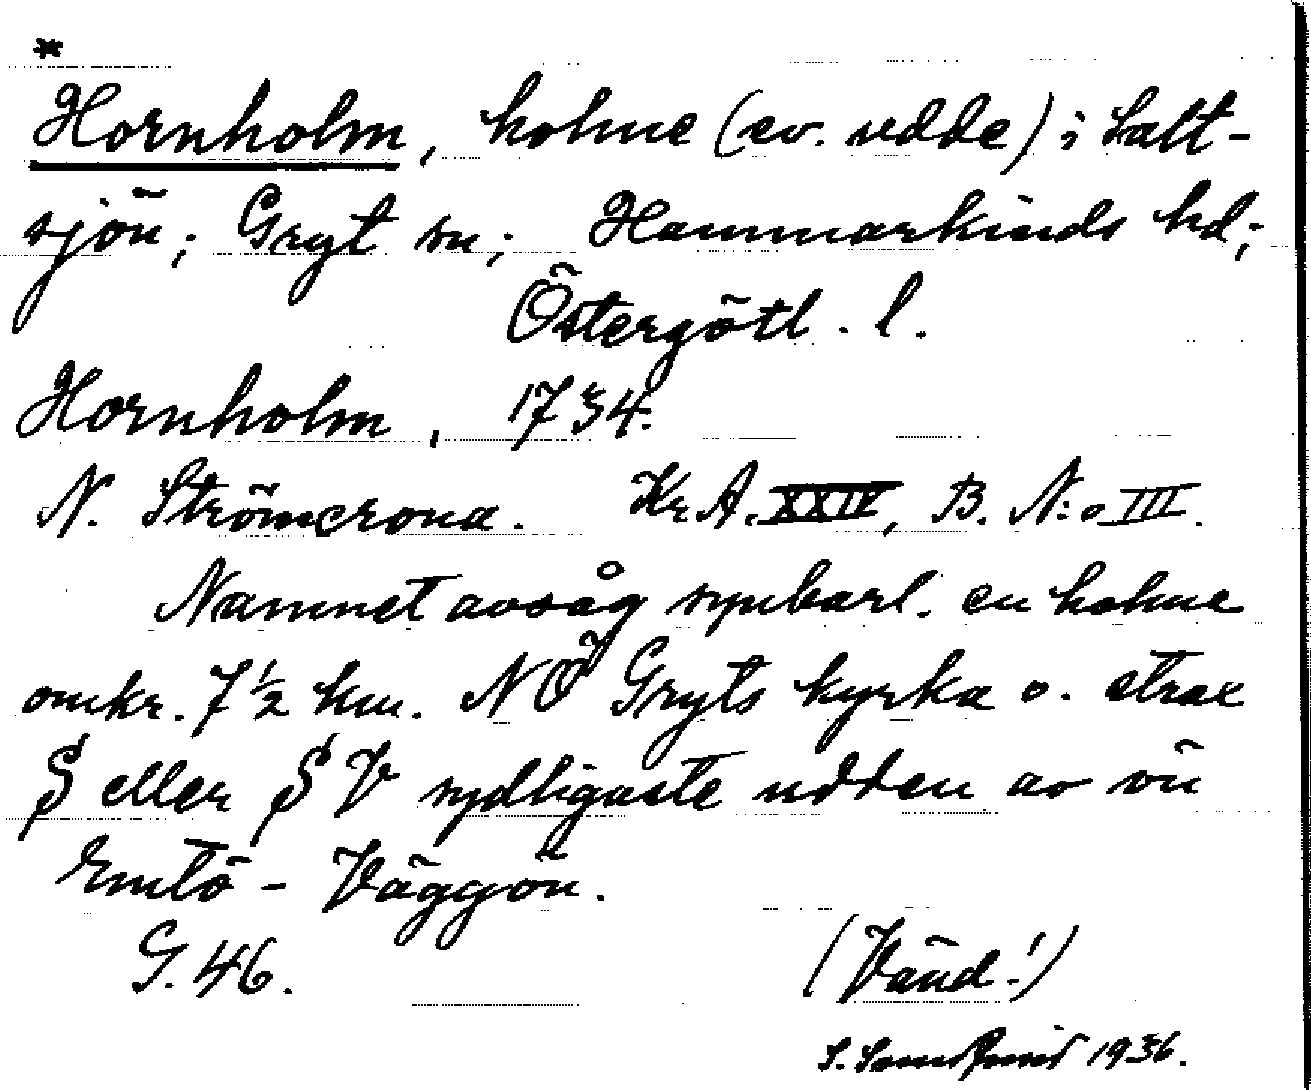 *
Hornholm, holme (ev. udde) i Salt-
sjön; Gryt sn; Hammarkinds hd;
Östergötl. l.
Hornholm, 1734.
N. Strömcrona. Kr. A. XXIV, B. N:o III.
Namnet avsåg synbarl. en holme
omkr. 7½ km. NÖ Gryts kyrka o. strax
S eller SV sydligaste udden av ön
Emtö - Väggön.
G. 46.
(Vänd!)
S. 1936.